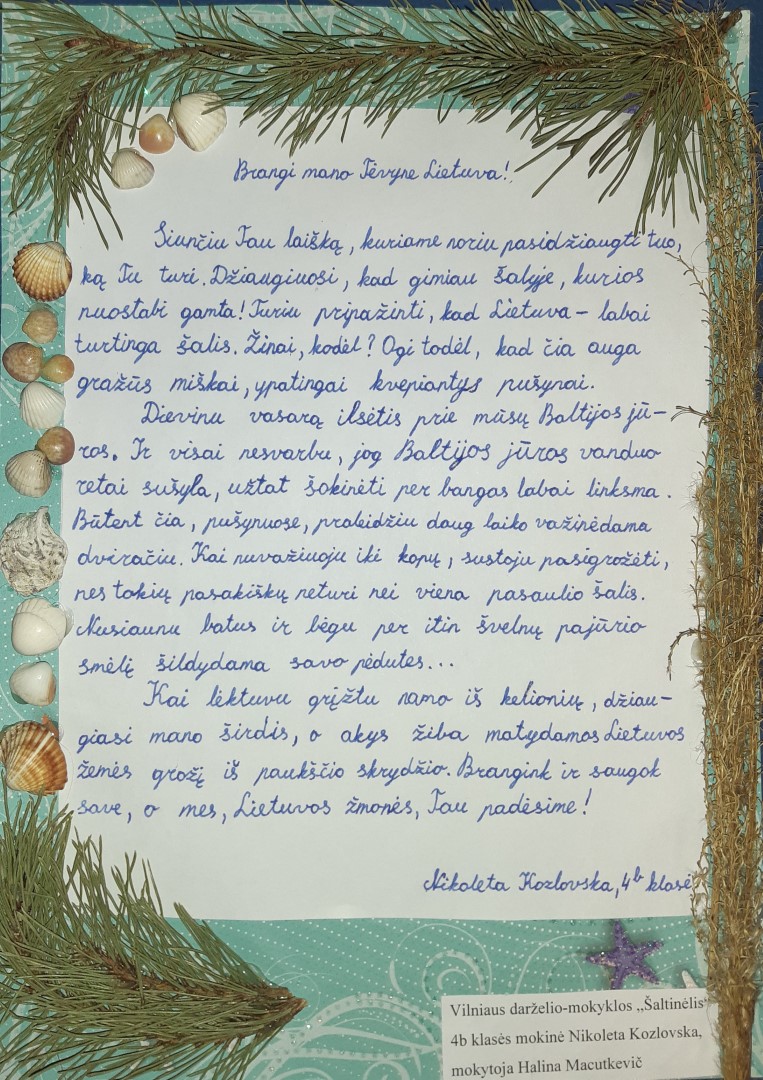 Brangi mano Tėvyne Lietuva!
Siunčiu Tau laišką, kuriame noriu pasidžiaugti tuo,
ką Tu turi. Džiaugiuosi, kad gimiau šalyje, kurios
nuostabi gamta! Turiu pripažinti, kad Lietuva – labai
turtinga šalis. Žinai, kodėl? Ogi todėl, kad čia auga
gražūs miškai, ypatingai kvepiantys pušynai.
Dievinu vasarą ilsėtis prie mūsų Baltijos jū-
ros. Ir visai nesvarbu, jog Baltijos jūros vanduo
retai sušyla, užtat šokinėti per bangas labai linksma.
Būtent čia, pušynuose, praleidžiu daug laiko važinėdama
dviračiu. Kai nuvažiuoju iki kopų, sustoju pasigrožėti,
nes tokių pasakiškų neturi nei viena pasaulio šalis.
Nusiaunu batus ir bėgu per itin švelnų pajūrio
smėlį šildydama savo pėdutes...
Kai lėktuvu grįžtu namo iš kelionių, džiau-
giasi mano širdis, o akys žiba matydamos Lietuvos
žemės grožį iš paukščio skrydžio. Brangink ir saugok
save, o mes, Lietuvos žmonės, Tau padėsime!
Nikoleta Kozlovska, 4b klasė
Vilniaus darželio-mokyklos „Šaltinėlis“
4b klasės mokinė Nikoleta Kozlovska,
mokytoja Halina Macutkevič